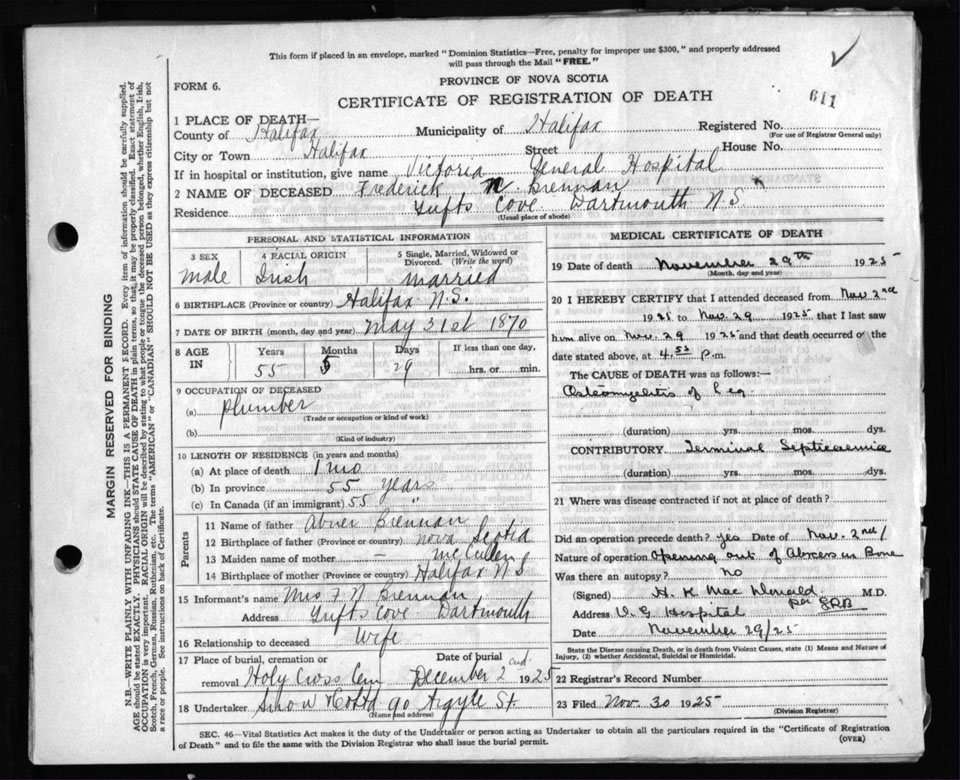 This form if placed in an envelope, marked "Dominion Statistics—Free, penalty for improper use $300," and properly addressed
will pass through the Mail "FREE."
FORM 6.
PROVINCE OF NOVA SCOTIA
CERTIFICATE OF REGISTRATION OF DEATH
611
1 PLACE OF DEATH—
County of Halifax Municipality of Halifax Registered No.
(For use of Registrar General only)
City or Town Halifax Street House No.
If in hospital or institution, give name Victoria General Hospital
2 NAME OF DECEASED Frederick N Brennan
Residence Tufts Cove Dartmouth N.S.
(Usual place of abode)
PERSONAL AND STATISTICAL INFORMATION
3 SEX 4 RACIAL ORIGIN 5 Single, Married, Widowed or
Divorced. (Write the word)
Male Irish Married
6 BIRTHPLACE (Province or country) Halifax N.S.
7 DATE OF BIRTH (month, day and year) May 31st 1870
8 AGE IN Years Months Days If less than one day,
55 5 29 hrs. or min.
9 OCCUPATION OF DECEASED
(a) Plumber
(Trade or occupation or kind of work)
(b)
(Kind of industry)
10 LENGTH OF RESIDENCE (in years and months)
(a) At place of death 1 mo
(b) In province 55 years
(c) In Canada (if an immigrant) 55 "
Parents
11 Name of father Abner Brennan
12 Birthplace of father (Province or country) Nova Scotia
13 Maiden name of mother — McCullen
14 Birthplace of mother (Province or country) Halifax N S
15 Informant's name Mrs F N Brennan
Address Tufts Cove Dartmouth
16 Relationship to deceased Wife
17 Place of burial, cremation or Date of burial
removal Holy Cross Cem December 2nd 1925
18 Undertaker Snow 90 Argyle St.
(Name and address)
MEDICAL CERTIFICATE OF DEATH
19 Date of death November 29th 1925
(Month, day and year)
20 I HEREBY CERTIFY that I attended deceased from Nov 2nd
1925 to Nov. 29 1925 that I last saw
him alive on Nov. 29 1925 and that death occurred on the
date stated above, at 4.55 p.m.
The CAUSE of DEATH was as follows:—
Osteomyelitis of Leg
(duration) yrs. mos. dys.
CONTRIBUTORY Terminal Septicaemia
(duration) yrs. mos. dys.
21 Where was disease contracted if not at place of death?
Did an operation precede death? yes Date of Nov. 2nd/
Nature of operation Opening out of Abscess in Bone
Was there an autopsy? No
(Signed) H. K. MacDonald M.D.
per GRB
Address V. G Hospital
Date November 29/25
State the Disease causing Death, or in death from Violent Causes, state (1) Means and Nature of
Injury, (2) whether Accidental, Suicidal or Homicidal.
22 Registrar's Record Number
23 Filed Nov. 30 1925
(Division Registrar)
SEC. 46—Vital Statistics Act makes it the duty of the Undertaker or person acting as Undertaker to obtain all the particulars required in the "Certificate of Registration
of Death" and to file the same with the Division Registrar who shall issue the burial permit.
(OVER)
MARGIN RESERVED FOR BINDING
N.B.—WRITE PLAINLY WITH UNFADING INK—THIS IS A PERMANENT RECORD. Every item of information should be carefully supplied.
AGE should be stated EXACTLY. PHYSICIANS should STATE CAUSE OF DEATH in plain terms, so that it may be properly classified. Exact statement of
OCCUPATION is very important. RACIAL ORIGIN will be described by stating to what people or tongue the deceased person belonged, whether English, Irish,
Scotch, French, German, Russian, Ruthenian, etc. The terms "AMERICAN" or "CANADIAN" SHOULD NOT BE USED as they express citizenship but not
a race or people. See instructions on back of Certificate.